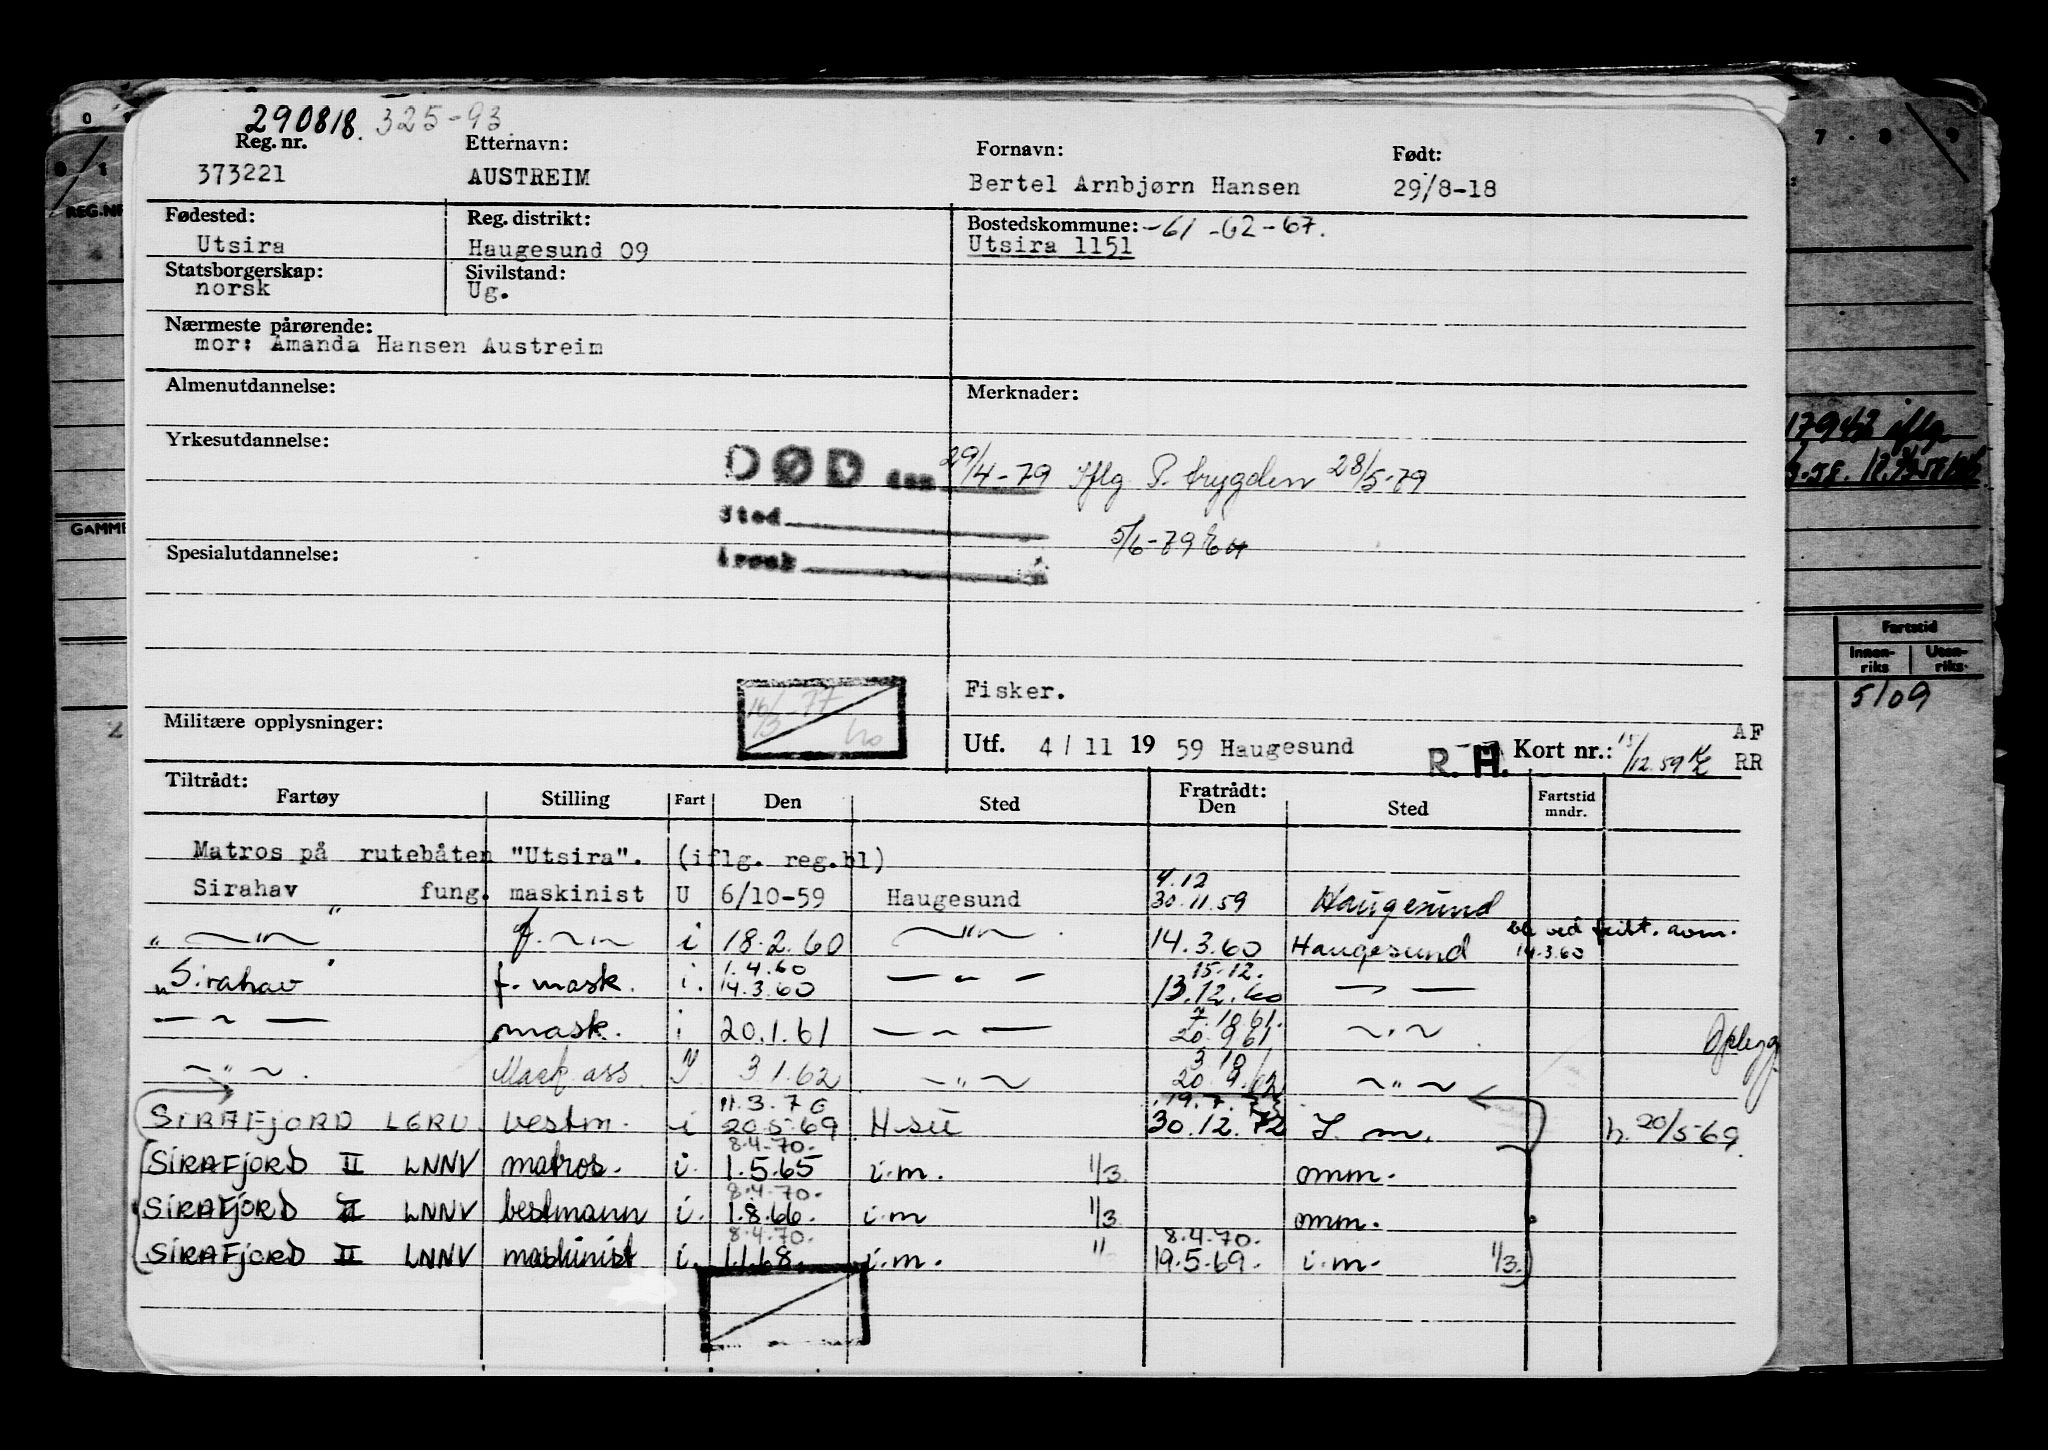 290818. 325-93
Reg. nr. Etternavn: Fornavn: Født:
373221 AUSTREIM Bertel Arnbjørn Hansen 29/8-18
Fødested: Reg. distrikt: Bostedskommune: -61 -62-67.
Utsira Haugesund 09 Utsira 1151
Statsborgerskap: Sivilstand:
norsk Ug.
Nærmeste pårørende:
mor: Amanda Hansen Austreim
Almenutdannelse: Merknader:
Yrkesutdannelse:
DØD den 29/4-79 Iflg P. trygden 28/5-79
Sted
5/6-79
Spesialutdannelse:
Fisker.
Militære opplysninger:
Utf. 4/11 1959 Haugesund R. H. Kort nr.: 15/12.59 AF
RR
Tiltrådt: Fratrådt:
Fartøy Stilling Fart Den Sted Den Sted Fartstid mndr.
Matros på rutebåten "Utsira". (iflg. reg.bl)
Sirahav fung. maskinist U 6/10-59 Haugesund 4.12 30.11.59 Haugesund
" — " — f. — " — i 18.2.60 — " — 14.3.60 Haugesund 14.3.60
"Sirahav" f. mask. i. 1.4.60 14.3.60 — " — 15.12. 13.12.60 — " —
— " — mask. i 20.1.61 — " — 7.10.61. 20.9.61 — " —
— " — Mask ass 3 1.62 — " — 3 10 20.9.62 — " —
SIRAFJORD LGRU. bestm. i 11.3.70 20.5.69 H-su 19.7. 30.12.72 h. 20/5-69
SIRAFJORD II LNNV matros. i. 8.4.70. 1.5.65 i.m. 1/3 omm.
SIRAFJORD II LNNV bestmann i. 8.4.70. 1.8.66. i.m 1/3 omm.
SIRAFJORD II LNNV maskinist i. 8.4.70. 1.1.68. i.m. 8.4.70. 19.5.69. i.m. 1/3.
REG.NR
GAMME
7 8 9
Fartstid
Innen-riks Uten-riks
5/09